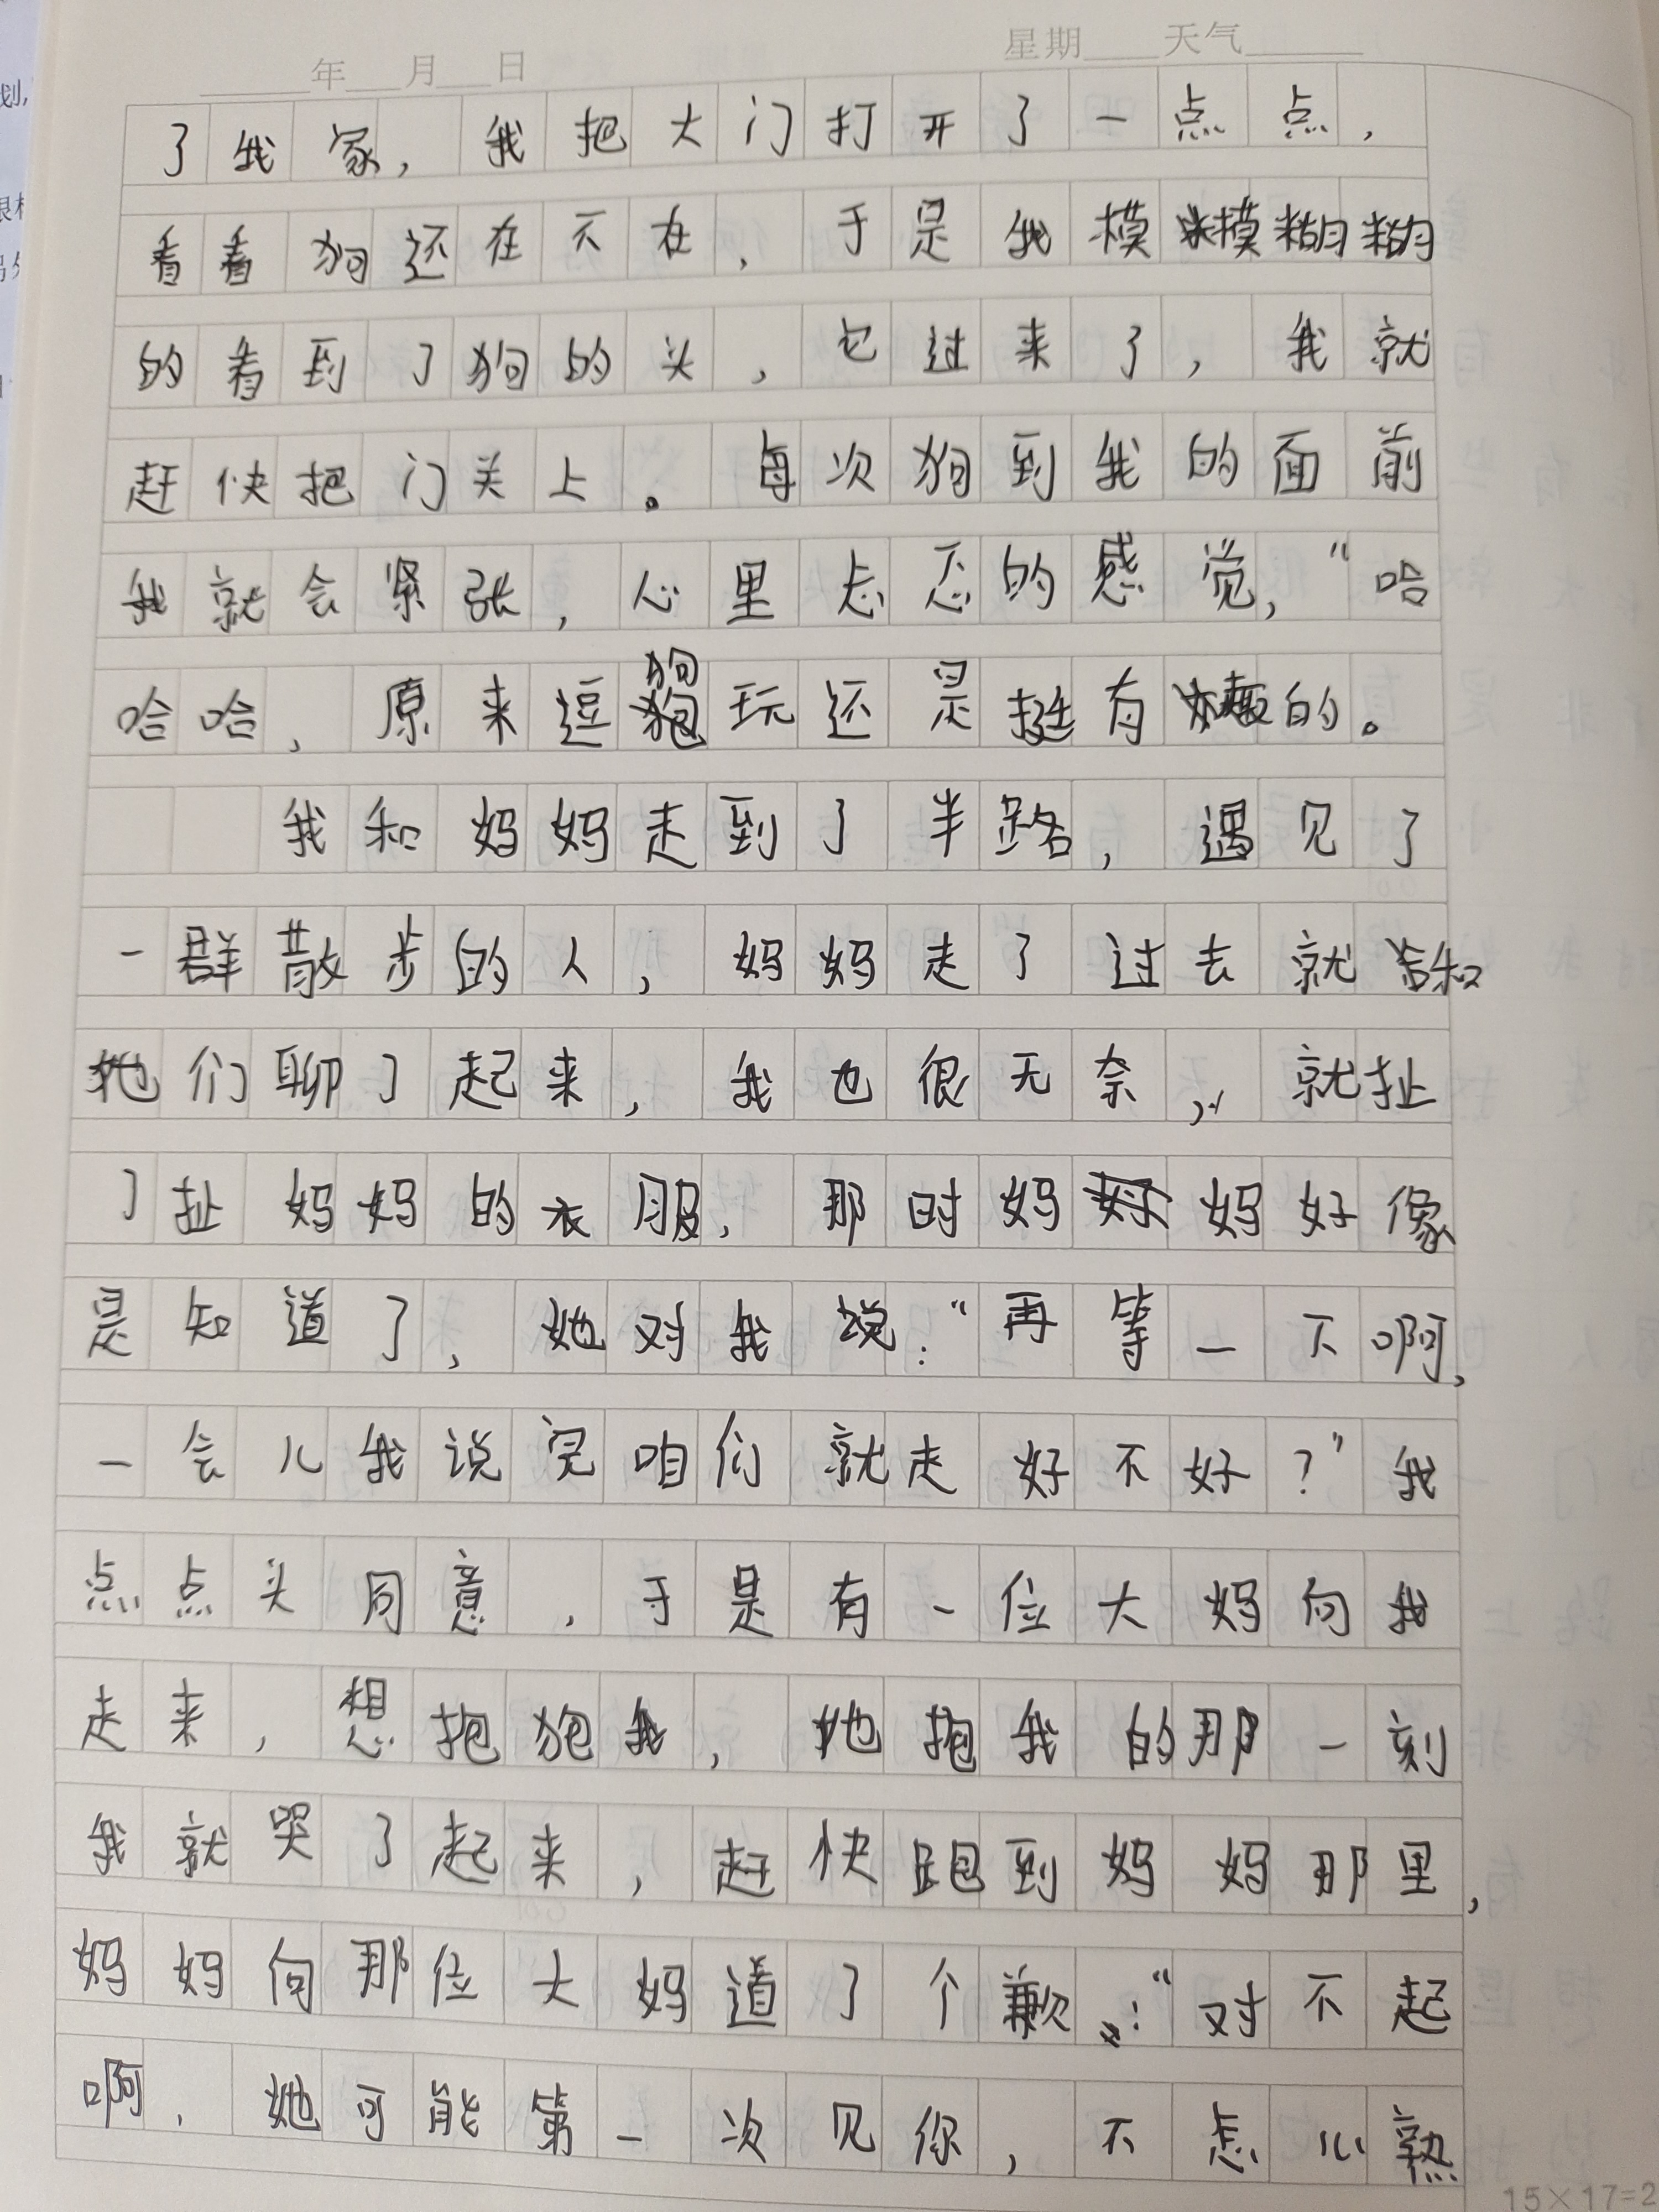 年 月 日 星期 天气
了我家,我把大门打开了一点点,
看看狗还在不在,于是我模模糊糊
的看到了狗的头,它过来了,我就
赶快把门关上。每次狗到我的面前
我就会紧张,心里忐忑的感觉,“哈
哈哈,原来逗狗玩还是挺有趣的。
我和妈妈走到了半路,遇见了
一群散步的人,妈妈走了过去就和
她们聊了起来,我也很无奈,就扯
了扯妈妈的衣服,那时妈妈好像
是知道了,她对我说:“再等一下啊,
一会儿我说完咱们就走好不好?”我
点点头同意,于是有一位大妈向我
走来,想抱抱我,她抱我的那一刻
我就哭了起来,赶快跑到妈妈那里,
妈妈向那位大妈道了个歉:“对不起
啊,她可能第一次见你,不怎心熟
15×17=2